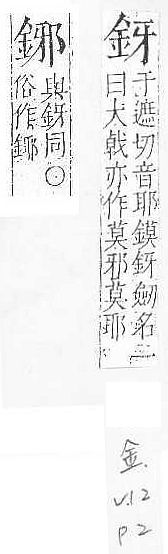 釾
于遮切音耶鏌釾劒名一
曰大戟亦作莫邪莫耶
鋣
與釾同○
俗作鎁
金
v.12
p2